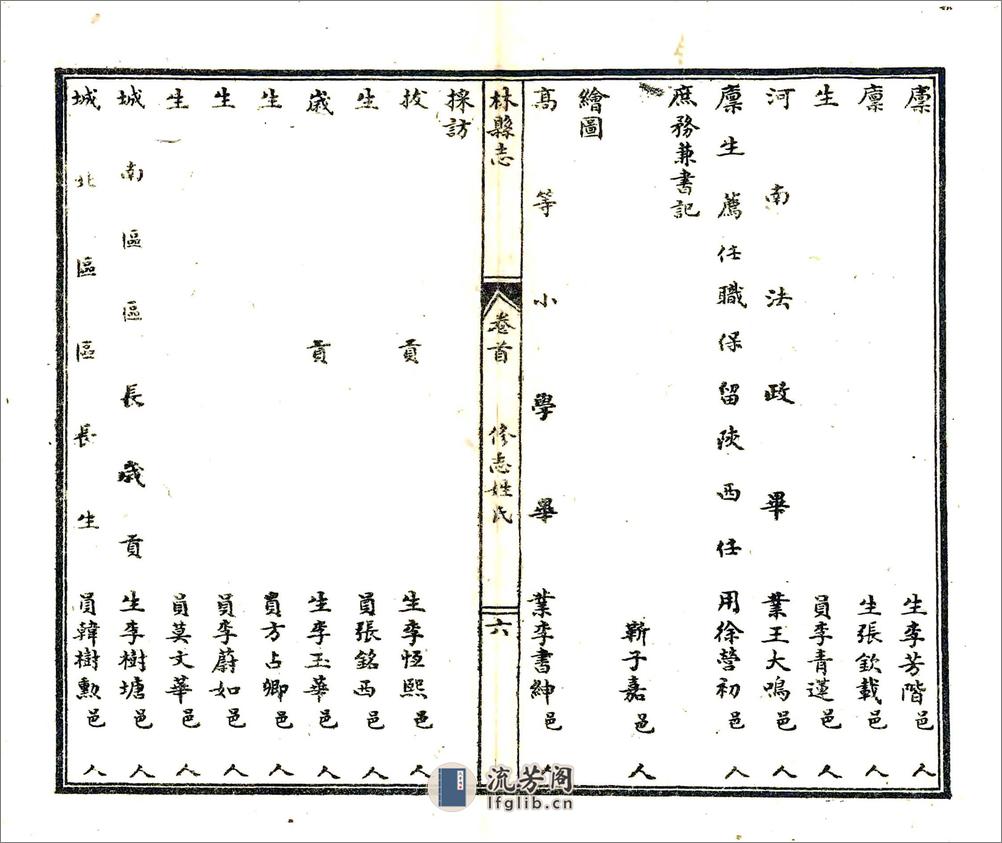 廩生李芳階邑人
廩生張欽載邑人
生員李青蓮邑人
河南法政畢業王大鳴邑人
廩生薦任職保留陝西任用徐營初邑人
庶務兼書記
靳子嘉邑人
繪圖
高等小學畢業李書紳邑人
林縣志 卷首 修志姓氏 六
採訪
拔貢生李恆熙邑人
生員張銘西邑人
歲貢生李玉華邑人
生員方占卿邑人
生員李蔚如邑人
生員莫文華邑人
城南區區長歲貢生李樹塘邑人
城北區區長生員韓樹勳邑人
流芳阁
lfglib.cn